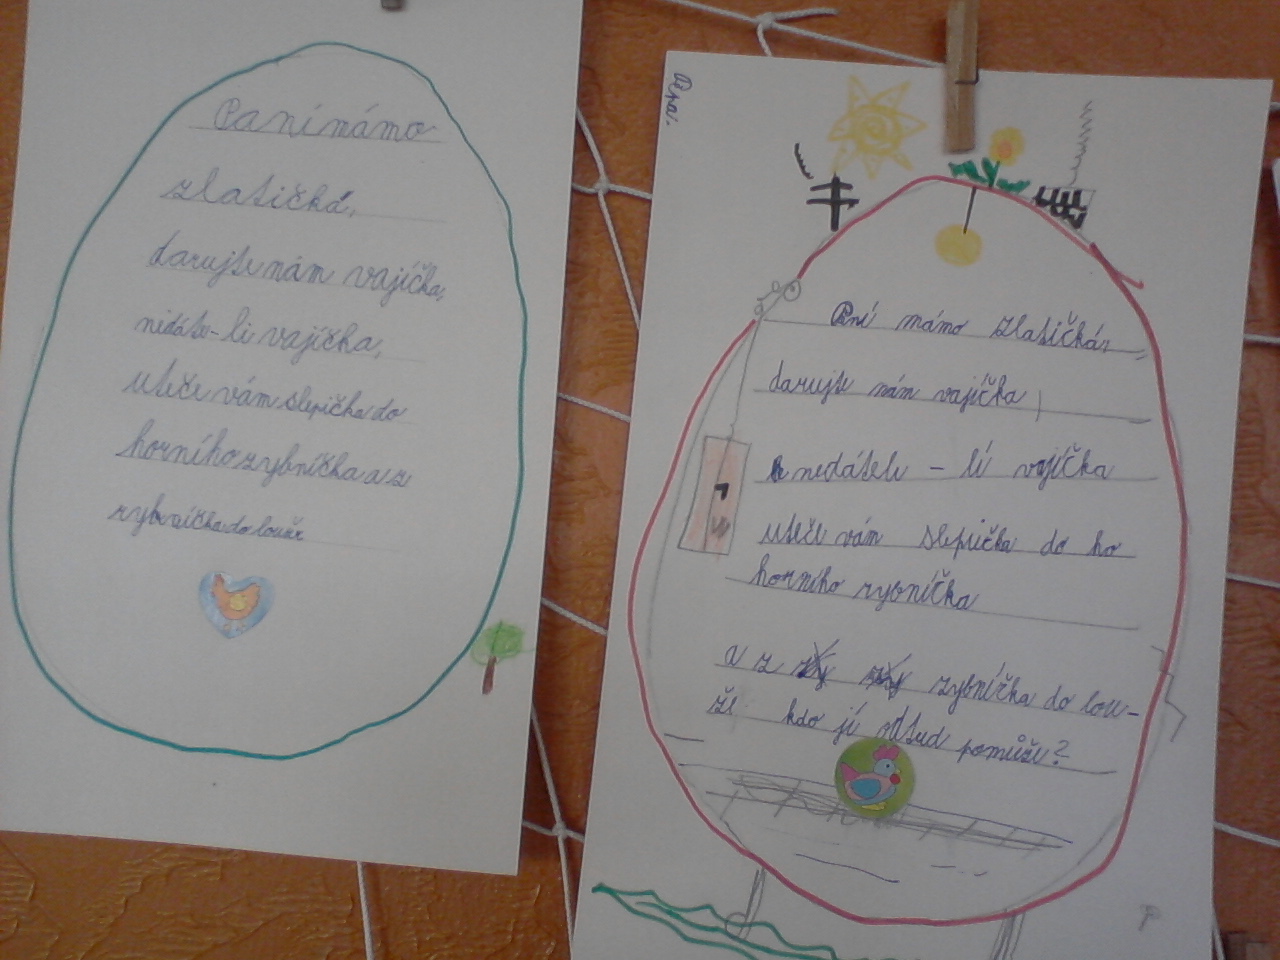 Panímámo
zlatičká,
darujte nám vajíčka,
nedáte-li vajíčka,
uteče vám slepička do
horního rybníčka a z
rybníčka do louže
Paní mámo zlatičká,
darujte nám vajíčka,
nedátele - li vajíčka
uteče vám slepička do ho
horního rybníčka
a z rybníčka do lou-
že. kdo jí odtud pomůže?